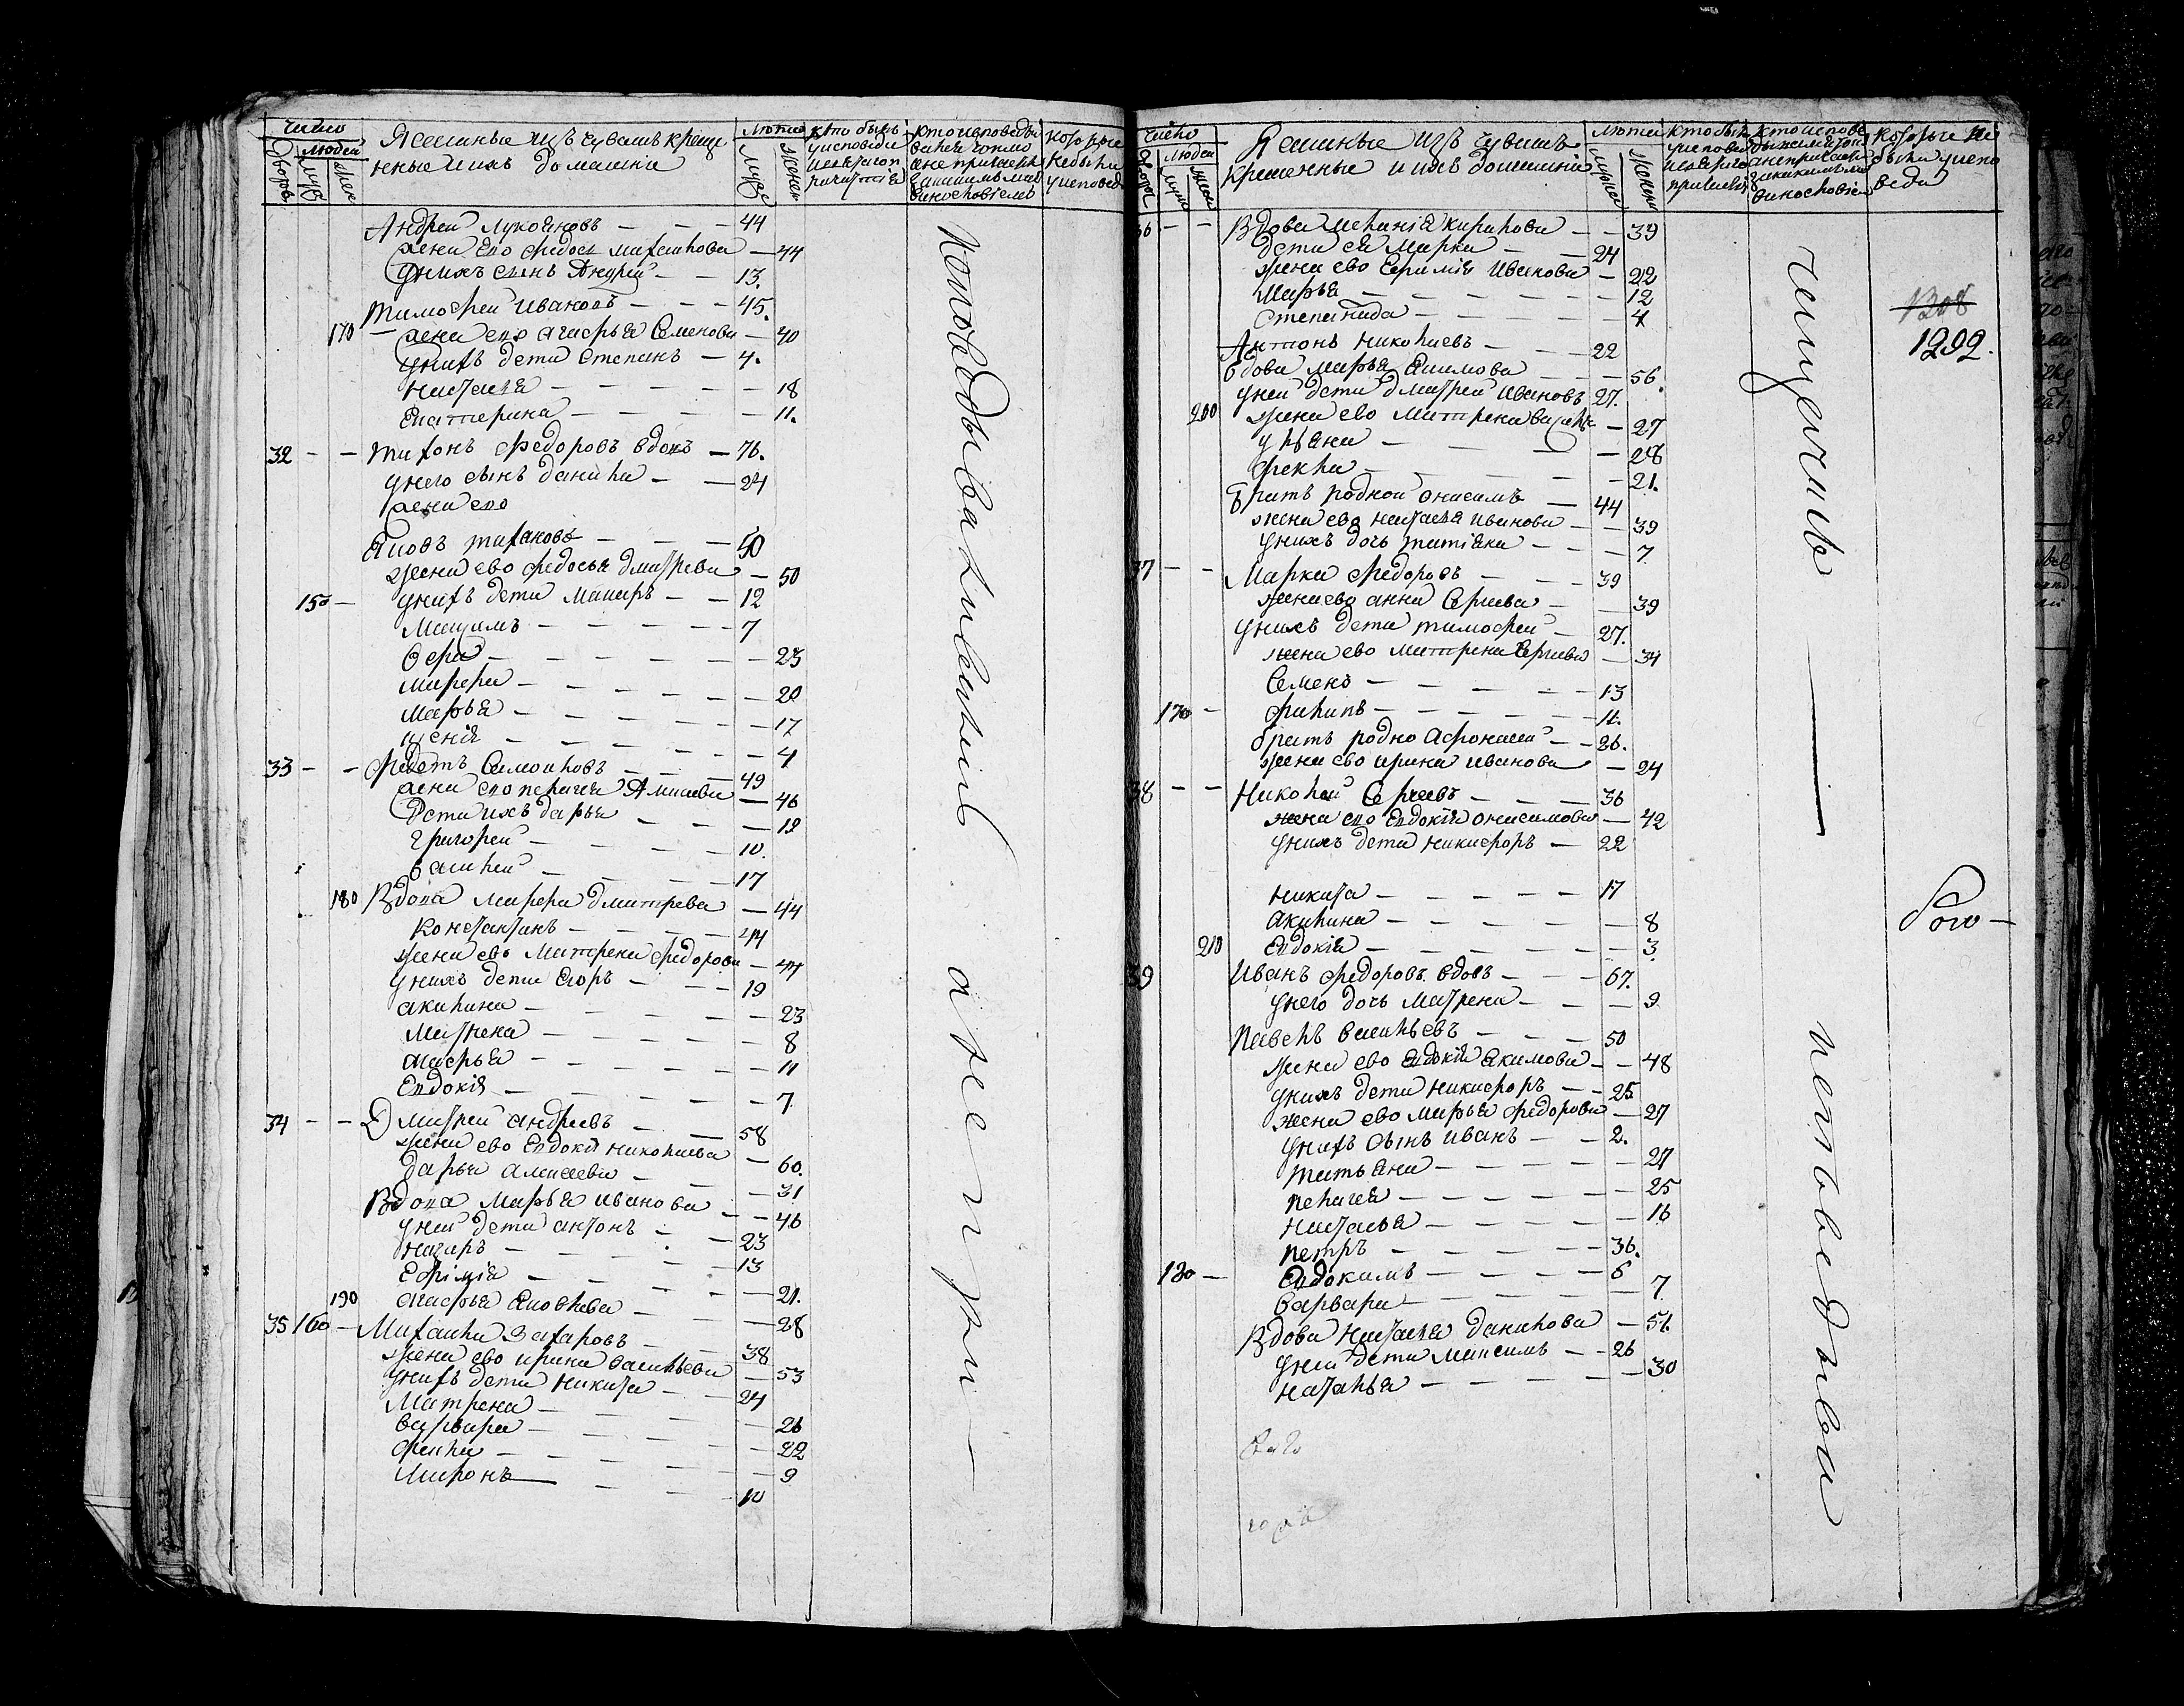 число
людей
дворов
муж
жен
Ясашные изъ чувашъ креще
ные и ихъ домашния
лѣта
мужс
женск
кто былъ
у исповеди
и святаго п
ричастия
кто исповеды
вался толко
а не причасти
исповед
Андрей Лукояновъ — — — 44
жена ево Федося Михайлова — 44
у нихъ сынъ Андрей — — 13.
Тимофей Ивановъ — — — 45.
170 — жена ево Агафья Семенова — 40
у нихъ дети Степанъ — 4.
Настасья — — — — — 18
Екатерина — — — — 11.
32 — — Тихонъ Федоровъ вдовъ — 76.
у него сынъ Данила — — 24
жена ево
Яковъ Тихановъ — — — 50
жена ево Федосья Дмитрева — 50
150 — у нихъ дети Макаръ — — 12
Максимъ — — — — — 7
Вера — — — — — — 23
Марфа — — — — — — 20
Марья — — — — — — 17
— — — — — — 4
33 — — Федотъ Самойловъ — — — 49
жена ево Пелагея — 46
дети ихъ Дарья — — — 12
Григорей — — — — — 10.
Василей — — — — — 17
180 Вдова Марфа Дмитрева — 44
Константинъ — — — — 44
жена ево Матрена Федорова — 44
у нихъ дети Егоръ — — — 19
Акилина — — — — — — 23
Матрена — — — — — — 8
Агафья — — — — — — 11
Евдокия — — — — — — 7
34 — — Дмитрей Андреевъ — — 58
жена ево Евдокия Николаева — 60.
Дарья Алексеева — — — — 31
Вдова Марья Иванова — — 46
у ней дети Антонъ — — — 23
Назаръ — — — — — 13
Ефимия — — — — — — 21.
190 Агафья Яковлева — — 28
35 160 — Михаила Захаровъ — — 38
жена ево Ирина Васильева — 53
у нихъ дети Никита — — 24
Матрена — — — — — 26
Варвара — — — — — 22
Фекла — — — — — — 9
Миронъ — — — — 10
исповедывались а
число
людей
Ясашные изъ чувашъ
крещенные и ихъ домашния
лѣта
мужеск
женск
кто былъ
у исповеди
которые не
были у испо
веди
36 — — Вдова Мелания Кирилова — — 39
дети ея Марка — 24
жена ево Ефимия Иванова — 22
Марья — — — — — — 12
Степанида — — — — — 4
Антонъ Николаевъ — — — 22
Вдова Марья Екимова — — — 56.
у ней дети Дмитрей Ивановъ 27.
200 жена ево Матрена — 27
Ульяна — — — 28
Фекла — — — — — — 21.
братъ родной Онисимъ — 44
жена ево Настасья Иванова — — 39
у нихъ дочь Татияна — — — 7
37 — — Марка Федоровъ — — — — 39
жена ево Анна Сергиева — — 39
у нихъ дети Тимофей — 27.
жена ево Матрена Сергиева — 34
Семенъ — — — — — 13
170 — Филипъ — — — — — 11.
братъ родно Афонасей — — 26.
жена ево Ирина Иванова — 24
38 — — Николай Сергеевъ — — — 36
жена ево Евдокия Онисимова — 42
у нихъ дети Никифоръ — 22
Никита — — — — — 17
Акилина — — — — — — 8
210 Евдокия — — — — — — 3
39 Иванъ Федоровъ вдовъ — — — 67.
у него дочь Матрена — — — 9
Павелъ Васильевъ — — — 50
жена ево Евдокия Екимова — — 48
у нихъ дети Никифоръ — — 25
жена ево Марья Федорова — 27
у нихъ сынъ Иванъ — — 2.
Татьяна — — — — — 27
Пелагея — — — — — — 25
Настасья — — — — — — 16
Петръ — — — — — 36.
180 — Евдокимъ — — — — — 6
Варвара — — — — — — 7
Вдова Настасья Данилова — 51.
у ней дети Максимъ — — 26
Наталья — — — — — — 30
исповедыва
1308
1292.
бого —